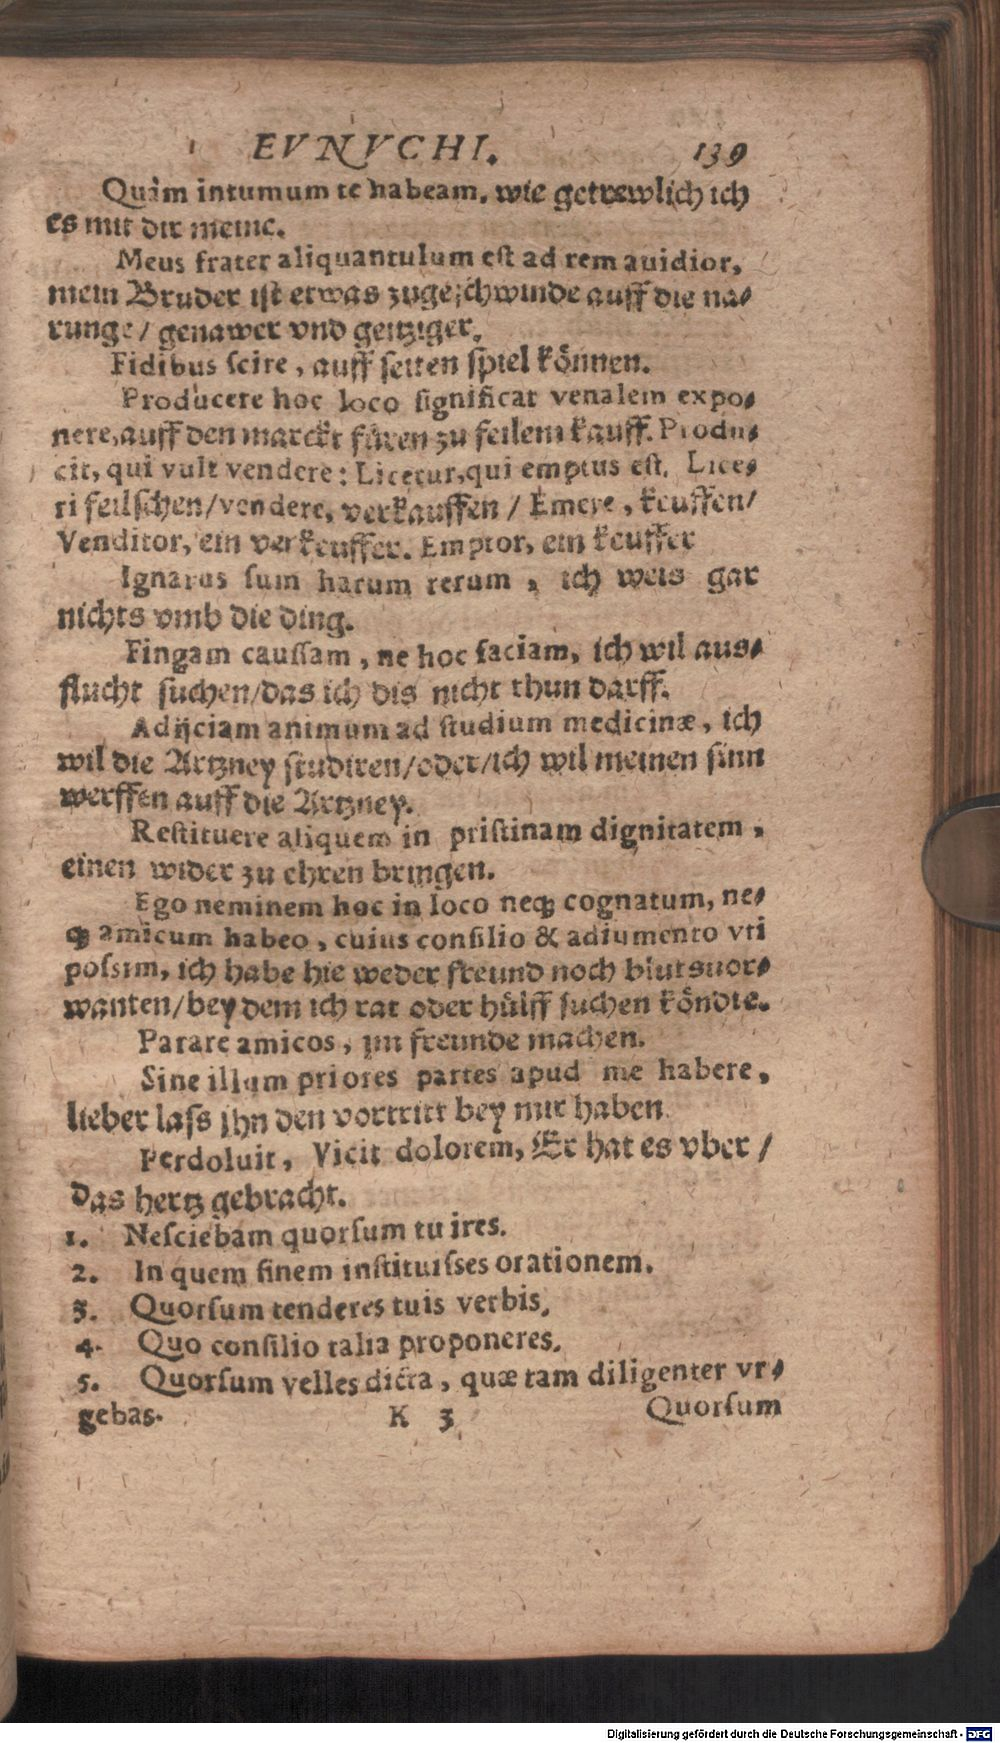 EVNVCHI. 139
Quàm intumum te habeam, wie getrewlich ich
es mit dir meine.
Meus frater aliquantulum est ad rem auidior,
mein Bruder ist etwas zugeschwinde auff die na⸗
runge / genawer vnd geitziger.
Fidibus scire, auff seiten spiel können.
Producere hoc loco significat venalem expo⸗
nere, auff den marckt füren zu feilem kauff. Produ⸗
cit, qui vult vendere: Licetur, qui emptus est. Lice⸗
ri feilschen/vendere, verkauffen / Emere, keuffen/
Venditor, ein verkeuffer. Emptor, ein keuffer
Ignarus sum harum rerum, ich weis gar
nichts vmb die ding.
Fingam caussam, ne hoc faciam, ich wil aus⸗
flucht suchen/das ich dis nicht thun darff.
Adijciam animum ad studium medicinæ, ich
wil die Artzney studiren/oder/ich wil meinen sinn
werffen auff die Artzney.
Restituere aliquem in pristinam dignitatem,
einen wider zu ehren bringen.
Ego neminem hoc in loco neq; cognatum, ne⸗
q; amicum habeo, cuius consilio & adiumento vti
possim, ich habe hie weder freund noch blutsuor⸗
wanten/bey dem ich rat oder hülff suchen köndte.
Parare amicos, jm freunde machen.
Sine illum priores partes apud me habere,
lieber lass jhn den vortritt bey mir haben.
Perdoluit, Vicit dolorem, Er hat es vber /
das hertz gebracht.
1. Nesciebam quorsum tu ires.
2. In quem finem instituisses orationem.
3. Quorsum tenderes tuis verbis.
4. Quo consilio talia proponeres.
5. Quorsum velles dicta, quæ tam diligenter vr⸗
gebas. K 3 Quorsum
Digitalisierung gefördert durch die Deutsche Forschungsgemeinschaft - DFG